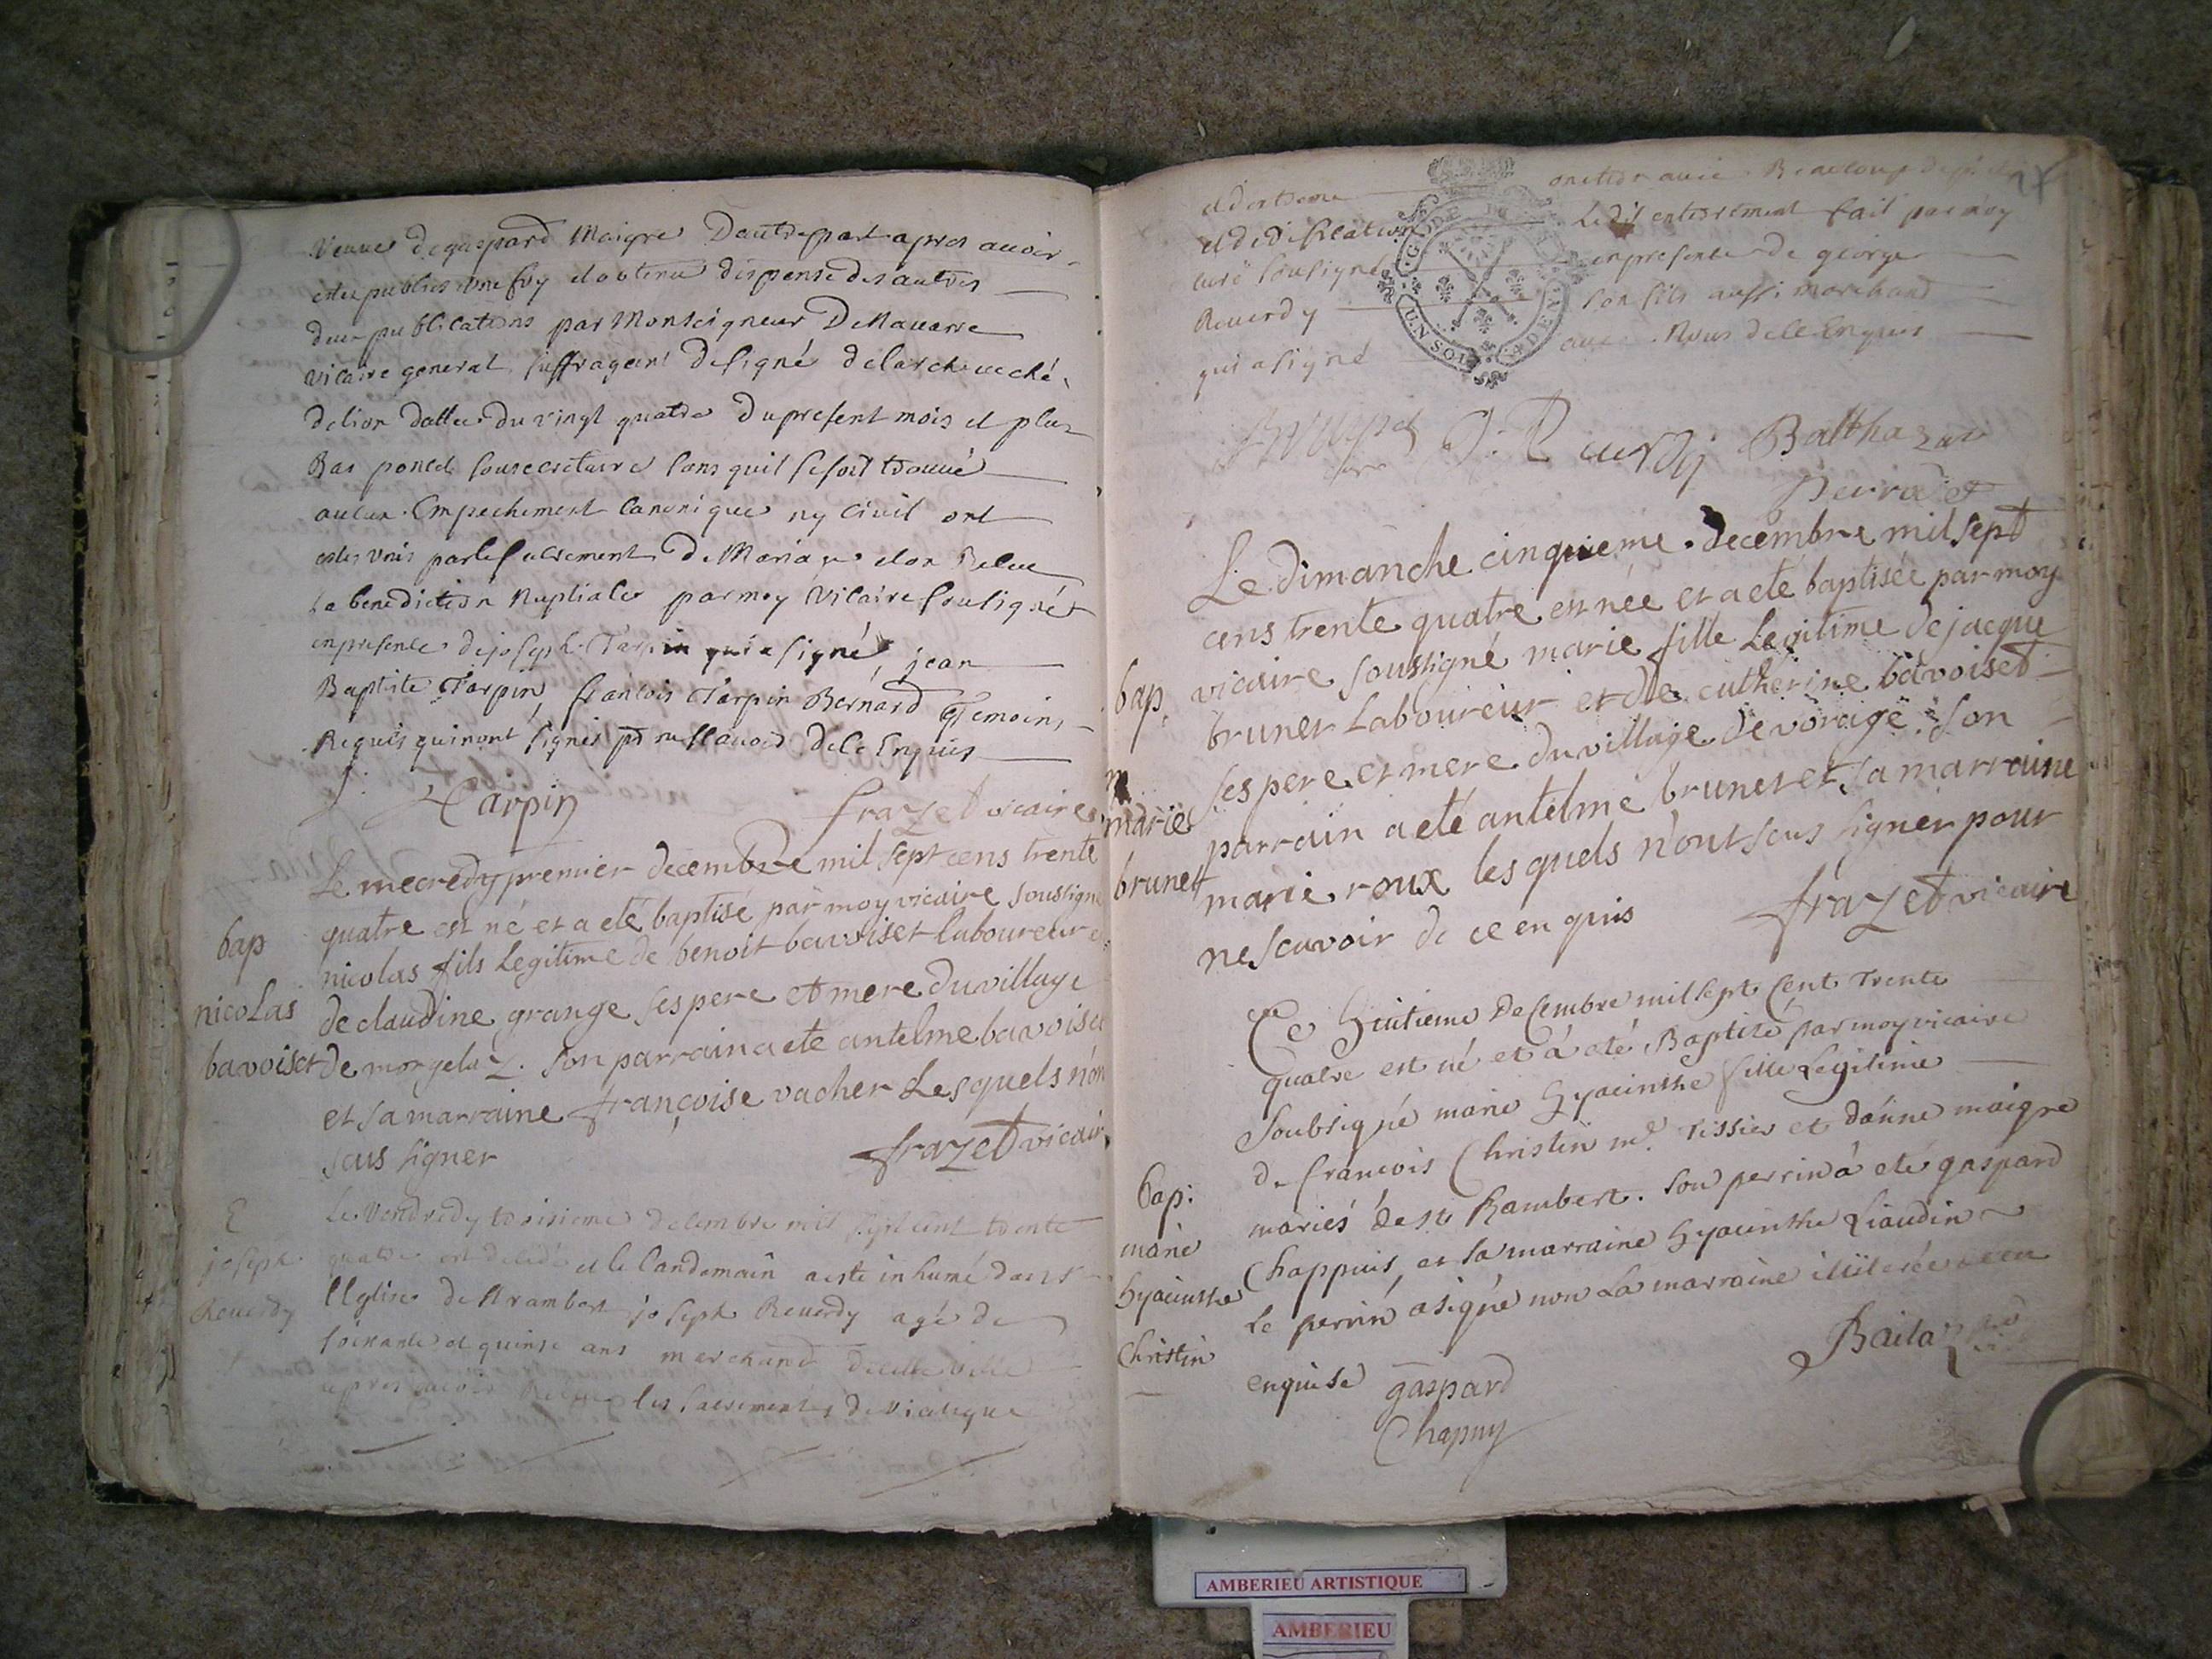 Veuve de gaspard Maigre Dautrepart apres avoir
estes publies une foy et obtenu dispense des autres
deux publications par Monseigneur De Navarre
vicaire general suffragant designé de larcheveché
de lion dattee du vingt quatre du present mois et plus
Bas poncet sousecretaire sans quil se soit trouvé
aucun Empechement Canonique ny Civil ont
estes unis par le sacrement de Mariage et on Receu
La benediction Nuptiale par moy Vicaire sousigné
en presence de joseph Tarpin qui a signé, jean
Baptiste Tarpin, francois Tarpin Bernard temoins,
Requis qui nont signés pr ne scavoir de ce Enquis
J. Tarpin
frazet vicaire
Le mecredy premier decembre mil sept cens trente
quatre est né et a eté baptisé par moy vicaire soussigné
nicolas fils Legitime de benoit bavoiset laboureur et
de claudine grange ses pere et mere du village
de morgelaz. son parrain a eté antelme bavoiset
et sa marraine françoise vacher Lesquels n'on
scus signer
frazet vicaire
bap
nicolas
bavoiset
Le Vendredy troisieme decembre mil sept cent trente
quatre est decedé et le landemain a esté inhumé dans
l'Eglise de St rambert joseph Reverdy agé de
soixante et quinse ans marchand de cette ville
apres avoir Receu les sacrements de viatique
E
joseph
Reverdy
et dextreme onction avec Beaucoup
et dedification Ledit enterrement fait par moy
curé sousigné en presence de george
Reverdy son fils aussi marchand
qui a signé avec Nous de ce Enquis
J. Reverdy Balthazar
Perradet
Le Dimanche cinquieme decembre mil sept
cens trente quatre est née et a eté baptisée par moy
vicaire soussigné marie fille Legitime de jacque
brunet Laboureur et de catherine bavoiset
ses pere et mere du village de vorage son
parrain a eté antelme brunet et sa marraine
marie roux lesquels n'ont scus signer pour
ne scavoir de ce en quis frazet vicaire
bap
marie
brunet
Ce huitieme Decembre mil sept Cent Trente
quatre est né et à eté Baptisé par moy vicaire
Soubsigné marie hyacinthe fille Legitime
de francois Christin md tissier et d'anne maigre
mariés de st Rambert. son perrin à eté gaspard
Chappuis, et sa marraine hyacinthe Liaudin
Le perrin a signé non La marraine illiterée de ce
enquise gaspard
Chapuy
Bailaz
bap:
marie
hyacinthe
Christin
G DE
UN SOL
AMBERIEU ARTISTIQUE
AMBERIEU